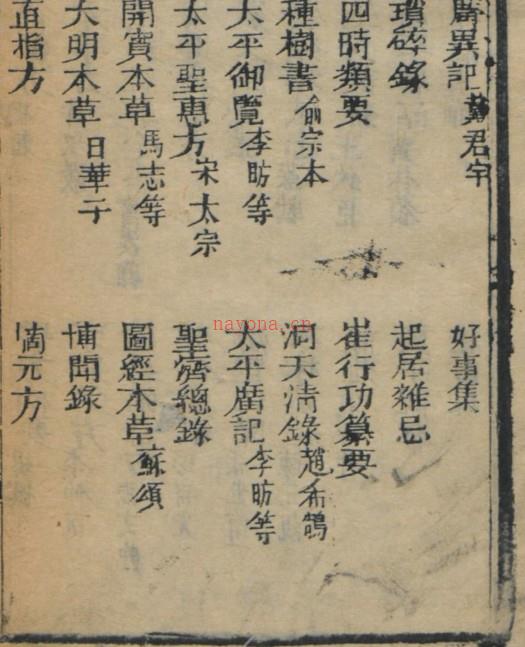 廣異記 戴君孚
好事集
瑣碎錄
起居雜忌
四時類要
崔行功纂要
種樹書 俞宗本
洞天清錄 趙希鵠
太平御覽 李昉等
太平廣記 李昉等
太平聖惠方 宋太宗
聖濟總錄
開寶本草 馬志等
圖經本草 蘇頌
大明本草 日華子
博聞錄
直指方
nayona.cn